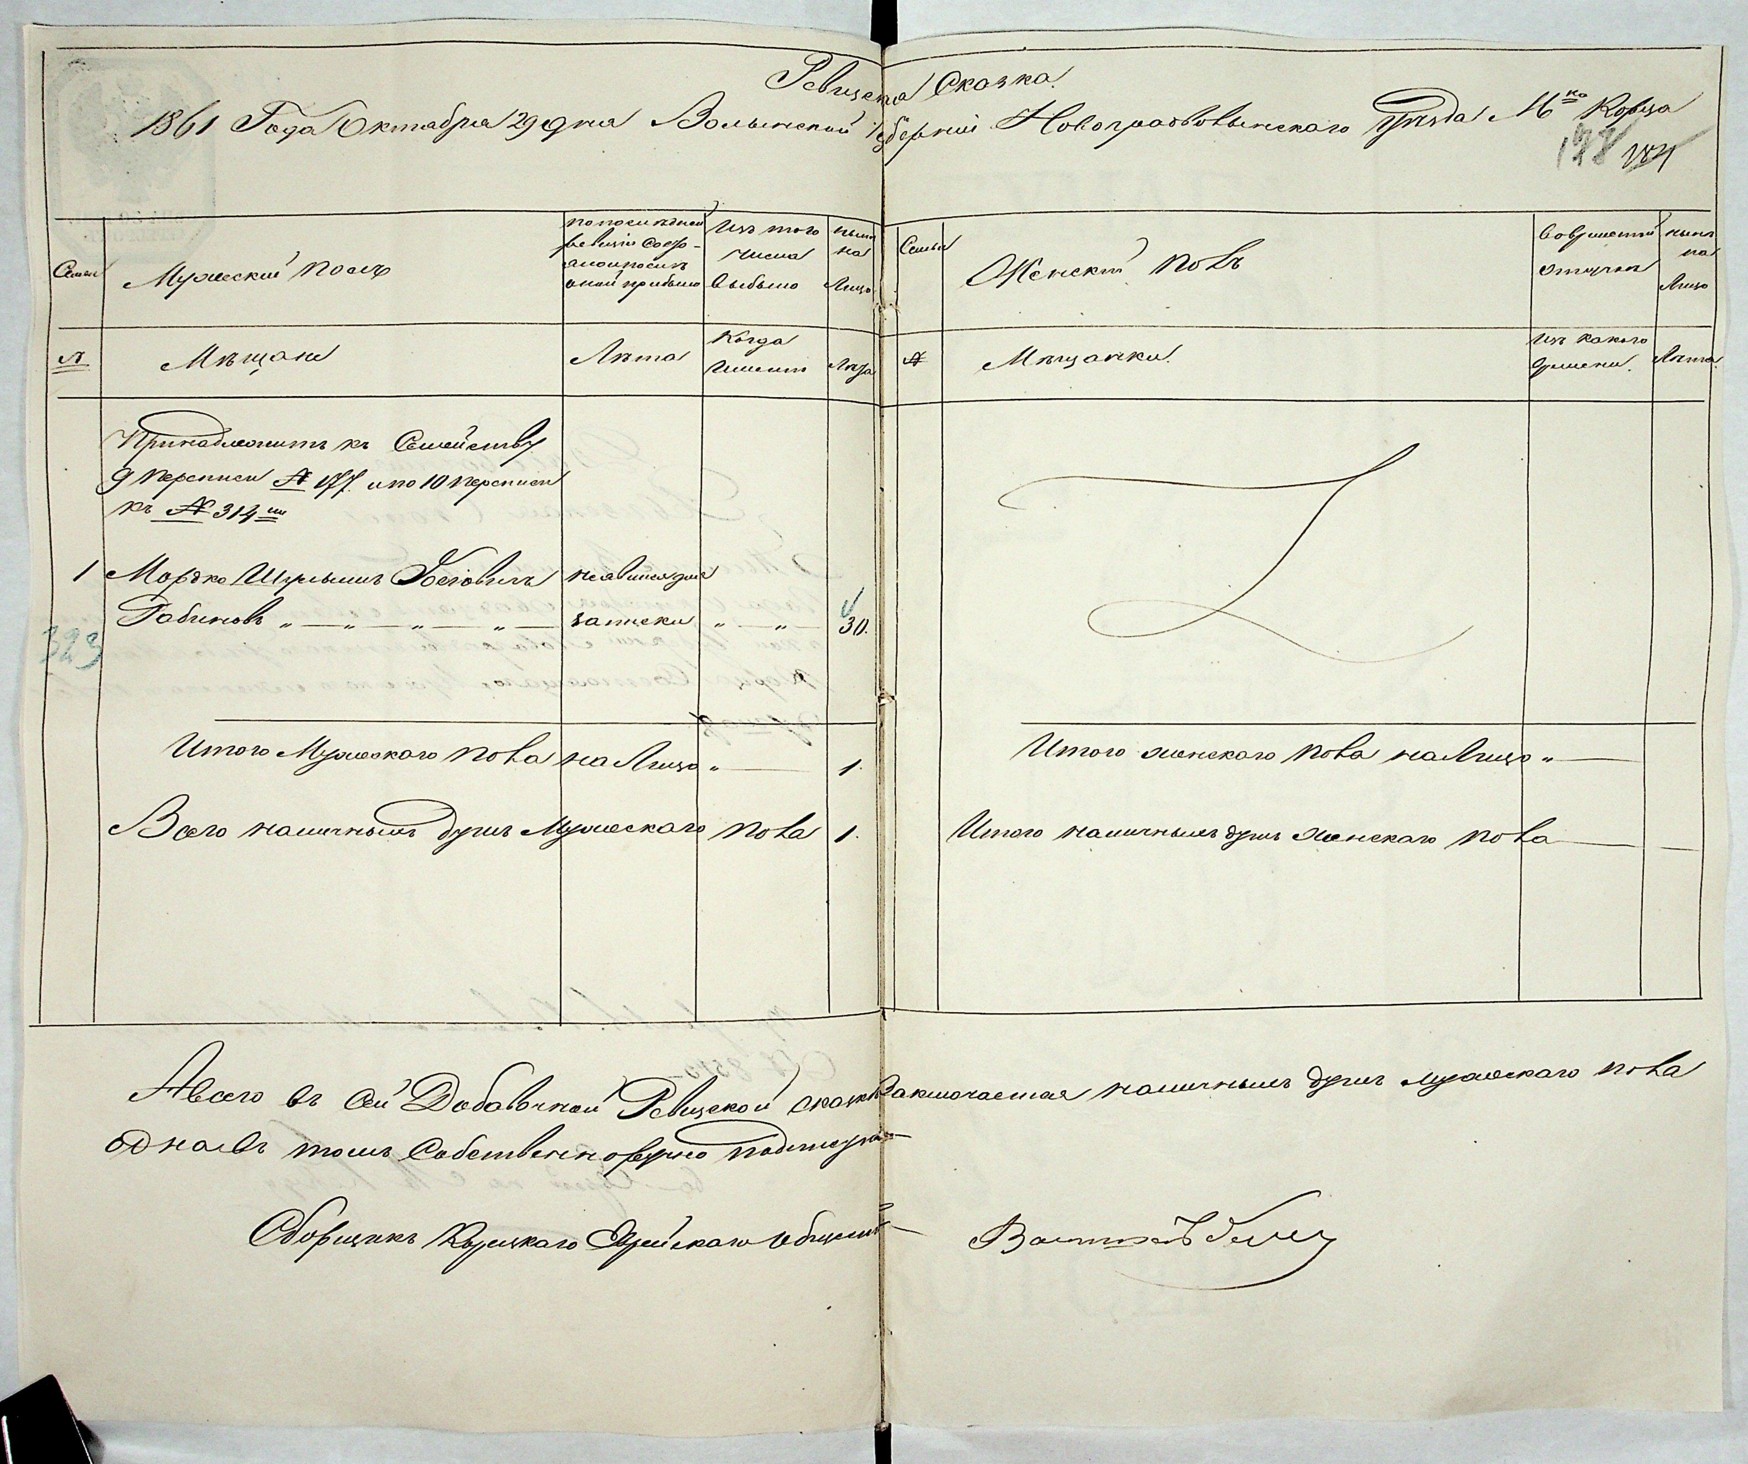 Ревизская Сказка.
1861 Года Октабря 29 дня Волынской Губерніи Новоградволынскаго Уѣзда Мᵏᵒ Корца
198 184
Семьи
Мужескій полъ
по последней ревизіи состояло и после оной прибыло
Изъ того числа выбыло
ныне на Лицо
Семьи
Женскій полъ
Во временной отлучке
ныне на Лицо
№
Мѣщане
Лѣта
Когда именно
Лѣта
№
Мѣщанки.
Изъ какого времени.
Лѣта.
Принадлежитъ къ Семейству
9 переписи № 177. и по 10 переписи
къ № 314
1 Мордко Шульимъ Іосіовичъ неявился для
Рабиновъ " — " — " — " — записки " — " 30.
323
Итого Мужескаго пола на Лицо " — 1.
Итого женскаго пола на Лицо " —
Всего наличныхъ душъ Мужескаго пола 1.
Итого наличныхъ душъ женскаго пола —
А всего въ сей Добавочной Ревизской сказкѣ заключается наличныхъ душъ мужескаго пола
одна въ томъ Собственноручно подписуюсь
Сборщикъ Корецкаго Еврейскаго Общества